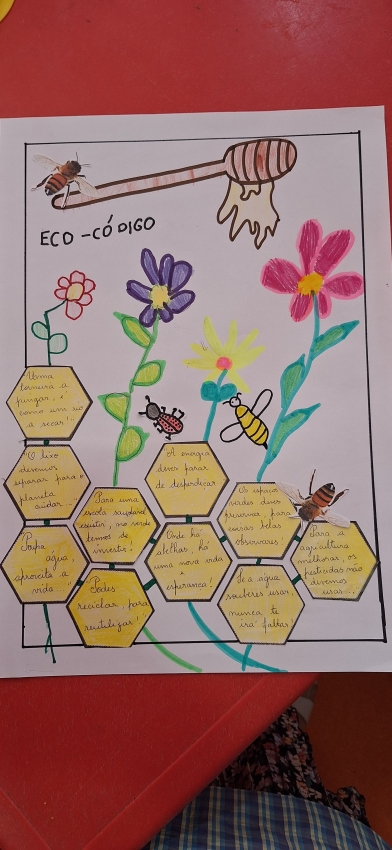 ECO-CÓDIGO
"Uma
torneira a
pingar, é
como um rio
a secar!"
"O lixo
devemos
separar para o
planeta
cuidar..."
Poupa
água,
aproveita a
vida...
Para uma
escola saudável
existir, no verde
temos de
investir!
Podes
reciclar, para
reutilizar!
"A energia
deves parar
de desperdiçar
Onde há
abelhas, há
uma nova vida
e
esperança!
Os espaços
verdes deves
preservar, para
coisas belas
observares!
Se a água
souberes usar,
nunca te
irá faltar!
Para a
agricultura
melhorar, os
pesticidas não
devemos
usar...